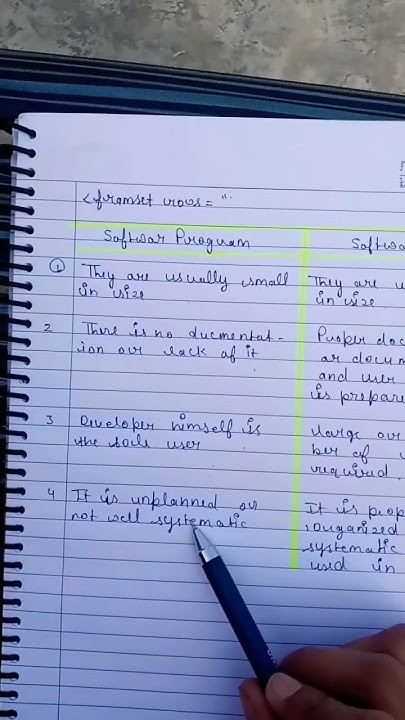 <framset rows = "
Softwar Program
Softwa
① They are usually small
in size
They are u
in size
2 There is no ducmentat-
ion or lack of it
Proper doc
ar docum
and user
is prepare
3 Developer himself is
the sole user
large or
ber of u
required.
4 It is unplanned or
not well systematic
It is prop
organized
systematic
used in